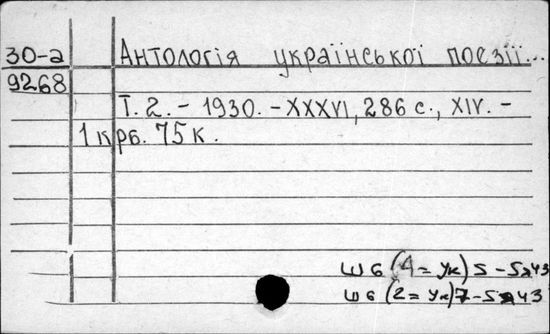 30-а Антологія української поезії...
9268
Т. 2. - 1930. - XXXVI, 286 с., XIV. -
1 крб. 75 к.
Ш6(4=Ук)5-5я43
Ш6(2=Ук)7-5я43